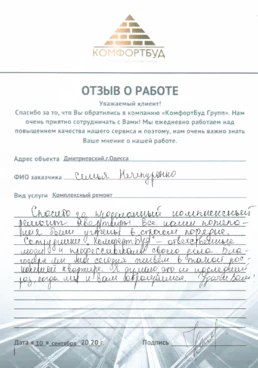 КОМФОРТБУД
ОТЗЫВ О РАБОТЕ
Уважаемый клиент!
Спасибо за то, что Вы обратились в компанию «КомфортБуд Групп». Нам
очень приятно сотрудничать с Вами! Мы ежедневно работаем над
повышением качества нашего сервиса и поэтому, нам очень важно знать
Ваше мнение о нашей работе.
Адрес объекта Дмитриевский г.Одесса
ФИО заказчика семья
Вид услуги Комплексный ремонт
Спасибо за комплексный
ремонт квартиры. Все наши пожела-
ния были учтены в строгом порядке.
Сотрудники "КомфортБуд" - ответственные
люди и профессионалы своего дела. Бла-
годаря им мы сегодня живем в такой рос-
кошной квартире. Я думаю это не последний
раз, когда мы к вам обращаемся.
Дата « 10 » сентябрь 2020 г.
Подпись